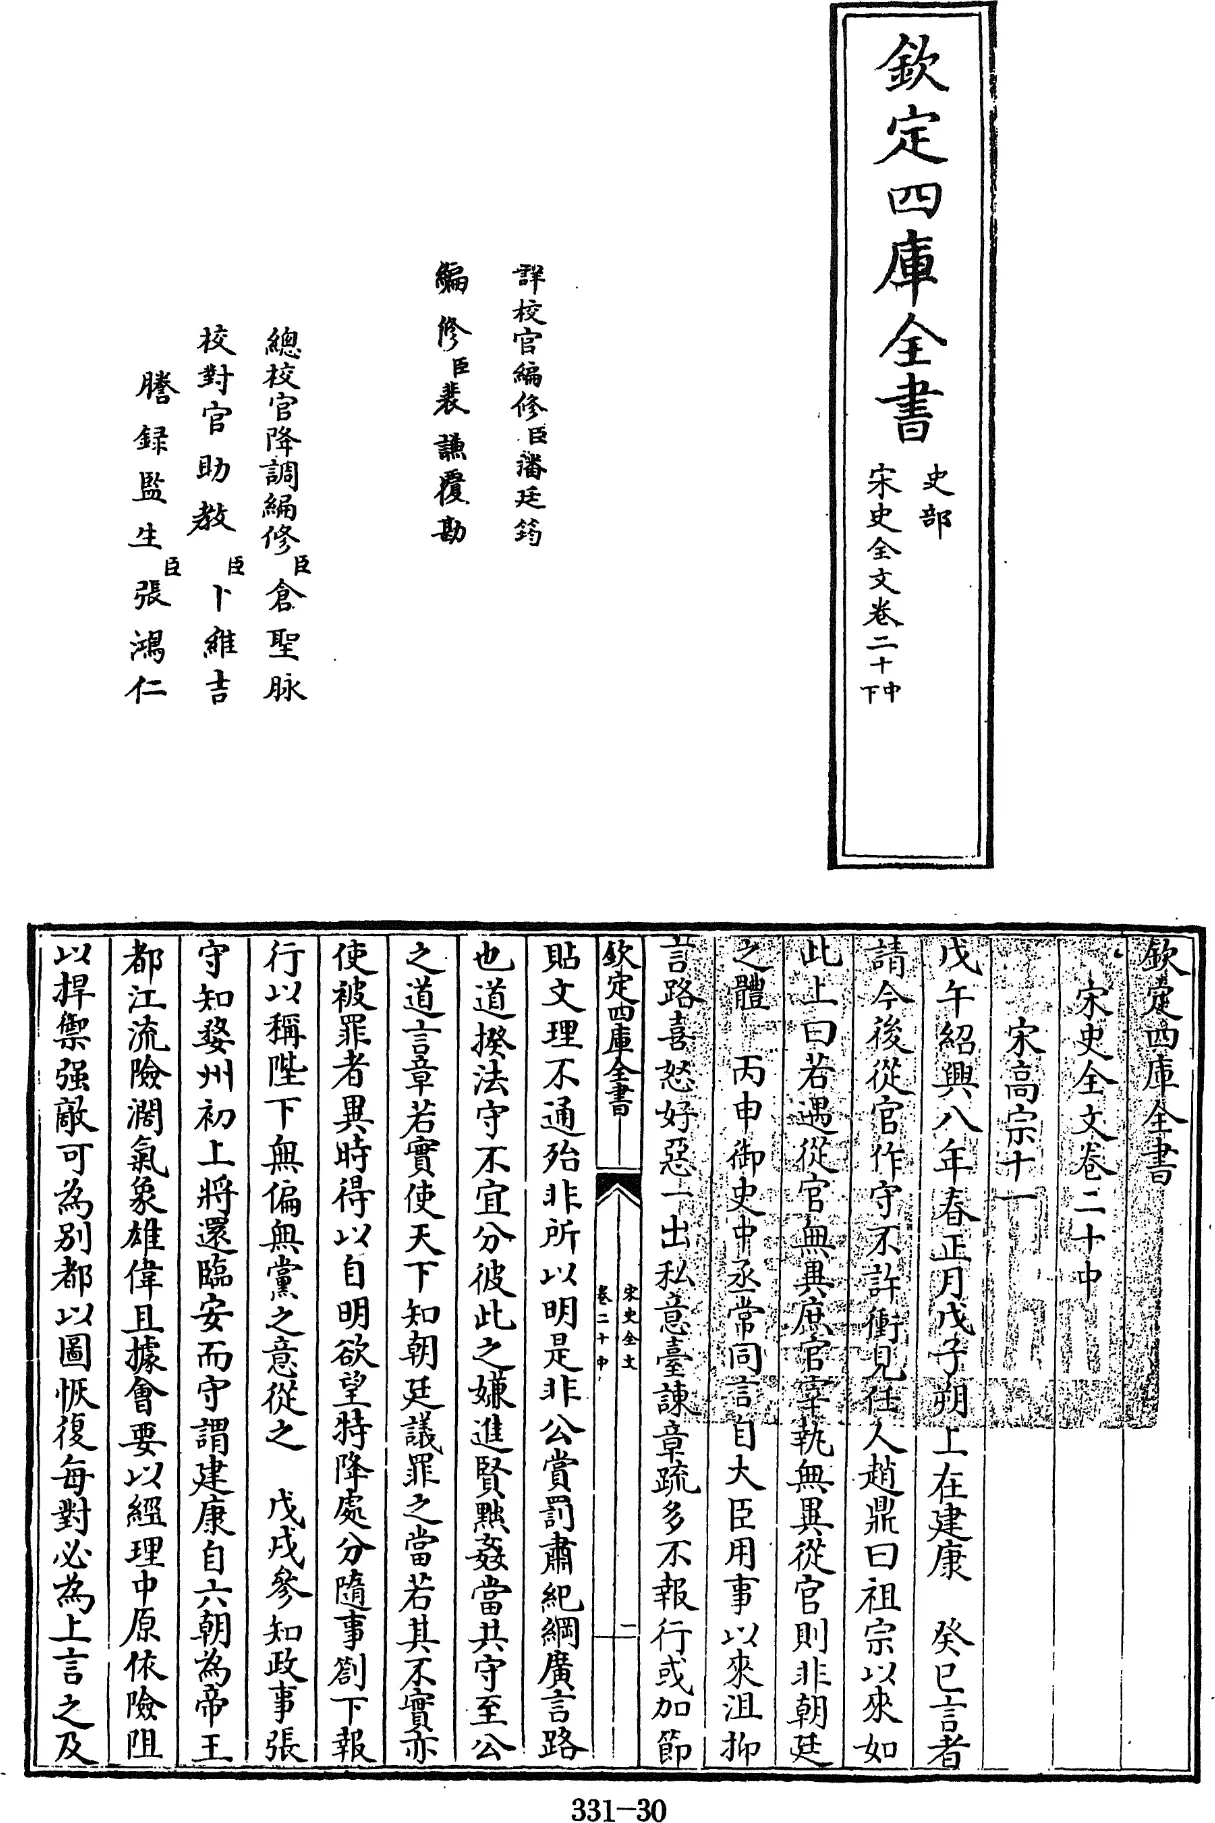 欽定四庫全書
史部
宋史全文卷二十中下
詳校官編修臣潘廷筠
編修臣裴謙覆勘
總校官降調編修臣倉聖脉
校對官助教臣卜維吉
謄録監生臣張鴻仁
欽定四庫全書
宋史全文卷二十中
宋高宗十一
戊午紹興八年春正月戊子朔上在建康 癸巳言者
請今後從官作守不許衝見任人趙鼎曰祖宗以來如
此上曰若遇從官無異庶官宰執無異從官則非朝廷
之體 丙申御史中丞常同言自大臣用事以來沮抑
言路喜怒好惡一出私意臺諫章疏多不報行或加節
欽定四庫全書
宋史全文
卷二十中
二
貼文理不通殆非所以明是非公賞罰肅紀綱廣言路
也道揆法守不宜分彼此之嫌進賢黜姦當共守至公
之道言章若實使天下知朝廷議罪之當若其不實亦
使被罪者異時得以自明欲望特降處分隨事劄下報
行以稱陛下無偏無黨之意從之 戊戌參知政事張
守知婺州初上將還臨安而守謂建康自六朝為帝王
都江流險濶氣象雄偉且據會要以經理中原依險阻
以捍禦强敵可為別都以圖恢復每對必為上言之及
331-30